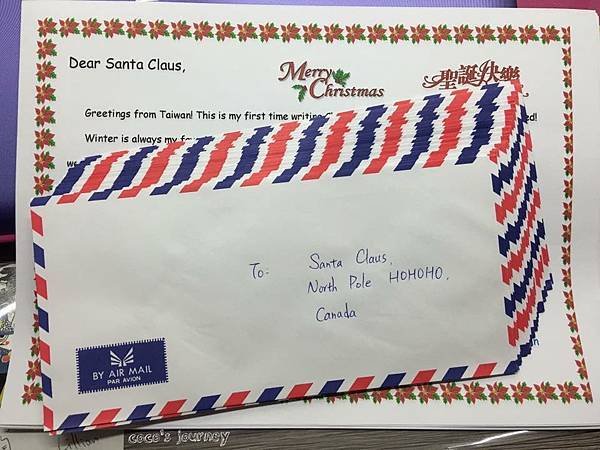 Dear Santa Claus,
Merry
Christmas
聖誕快樂
Greetings from Taiwan! This is my first time writing
Winter is always my
To: Santa Claus,
North Pole HOHOHO,
Canada
BY AIR MAIL
PAR AVION
coco's journey